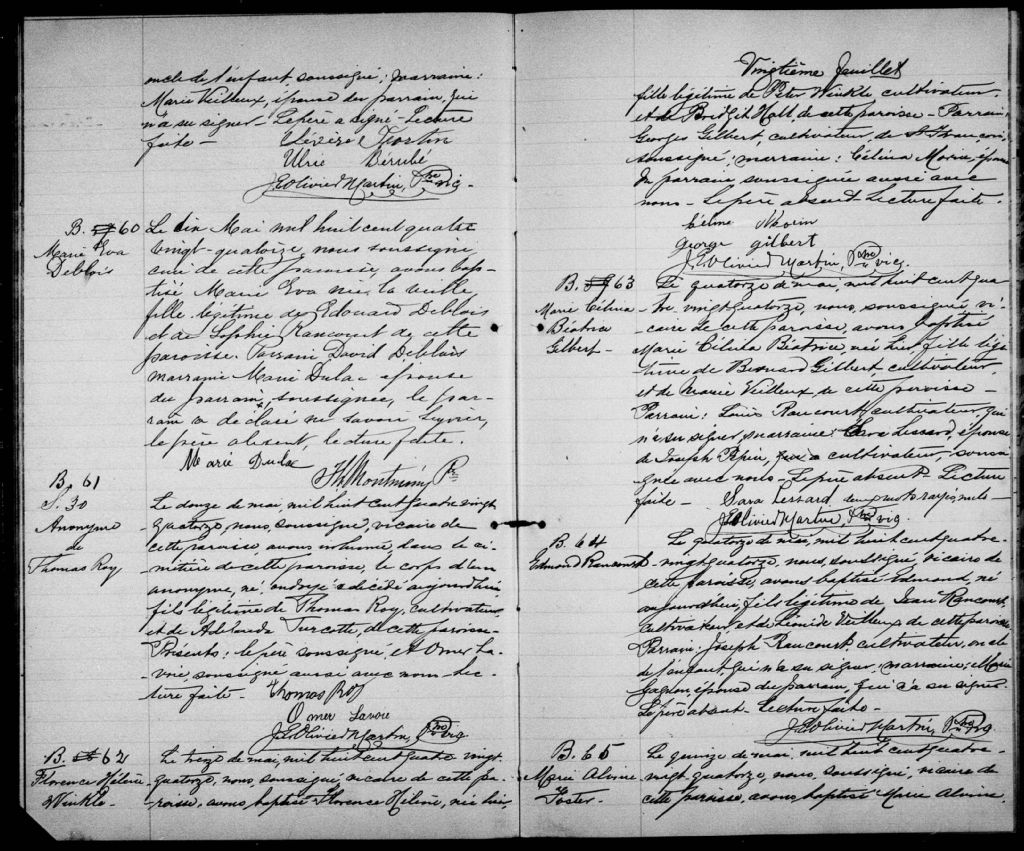 oncle de l'enfant soussigné; marraine:
Marie Veilleux, épouse du parrain, qui
n'a su signer - Le père a signé - Lecture
faite -
Fortin
Ulric Bérubé
J.E. Olivier Martin, Ptre vic.
B. 60
Marie Eva
Deblois
Le dix Mai mil huit cent quatre
vingt-quatorze, nous soussigné
curé de cette paroisse, avons bap-
tisé Marie Eva née la veille
fille légitime de Edouard Deblois
et de Sophie Rancourt de cette
paroisse. Parrain David Deblois
marraine Marie Dulac épouse
du parrain, soussignée, le par-
rain a déclaré ne savoir signer,
le père absent, lecture faite.
Marie Dulac
Th. Montminy Ptr
B. 61
S. 30
Anonyme
de
Thomas Roy
Le douze de mai, mil huit cent quatre vingt
quatorze, nous, soussigné, vicaire de
cette paroisse, avons inhumé, dans le ci-
metière de cette paroisse, le corps d'un
anonyme, né, ondoyé & décédé aujourd'hui,
fils légitime de Thomas Roy, cultivateur
et de Adelaide Turcotte, de cette paroisse -
Présents: le père soussigné, et Omer La-
voie, soussigné aussi avec nous - Lec-
ture faite - Thomas Roy
Omer Lavoie
J.E. Olivier Martin, Ptre vic.
B. 62
Florence Hélène
Winkle -
Le treize de mai, mil huit cent quatre vingt
quatorze, nous, soussigné, vicaire de cette pa-
roisse, avons, baptisé Florence Hélène, née hier,
Vingtième feuillet
fille légitime de Peter Winkle cultivateur,
et de Bridgit Hall de cette paroisse - Parrain,
Georges Gilbert, cultivateur, de St François,
soussigné, marraine: Célina Morin, épouse
du parrain soussignée aussi avec
nous - Le père absent Lecture faite.
Céline Morin
george gilbert
J.E. Olivier Martin, Ptre vic.
B. 63
Marie Célina
Béatrice
Gilbert -
Le quatorze de mai, mil huit cent qua-
tre, vingt quatorze, nous, soussigné, vi-
caire de cette paroisse, avons baptisé
Marie Célina Béatrice, née hier fille légi-
time de Bernard Gilbert, cultivateur,
et de Marie Veilleux de cette paroisse -
Parrain: Louis Rancourt, cultivateur, qui
n'a su signer, marraine: Sara Lessard, épouse
de Joseph Pépin, cultivateur, souss
ignée avec nous - Le père absent - Lecture
faite - Sara Lessard deux mots rayés nuls -
J.E. Olivier Martin, Ptre vic.
B. 64
Edmond Rancourt -
Le quatorze de mai, mil huit cent quatre-
vingt quatorze, nous, soussigné, vicaire de
cette paroisse, avons baptisé Edmond, né
aujourd'hui, fils légitime de Jean Rancourt,
cultivateur, et de Léonide Veilleux de cette paroisse
Parrain: Joseph Rancourt, cultivateur, oncle
de l'enfant, qui n'a su signer, marraine: Marie
Gagnon, épouse du parrain, qui n'a su signer
Le père absent - Lecture faite -
J.E. Olivier Martin, Ptre vic.
B. 65
Marie Alvine
Foster -
Le quinze de mai, mil huit cent quatre-
vingt-quatorze, nous, soussigné, vicaire de
cette paroisse, avons, baptisé Marie Alvine,